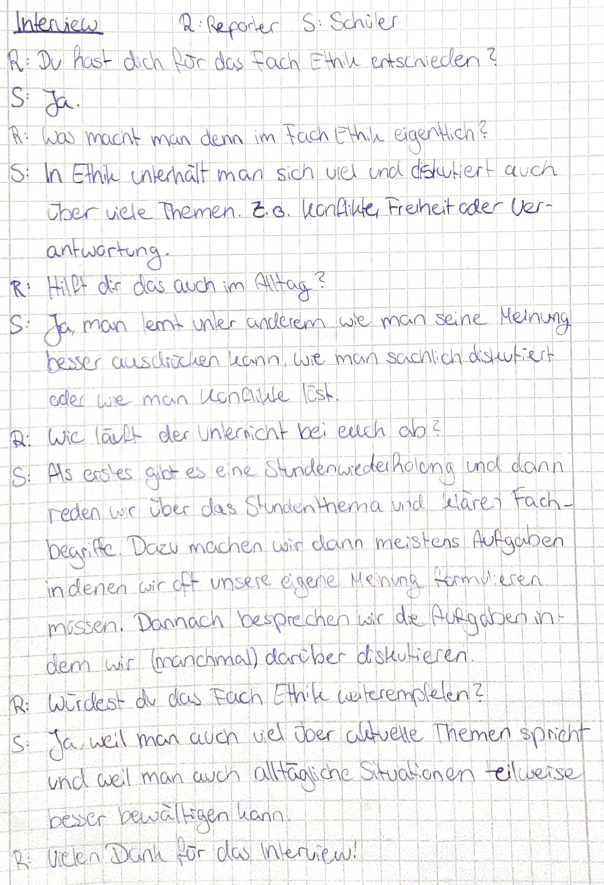 Interview R: Reporter S: Schüler
R: Du hast dich für das Fach Ethik entschieden?
S: Ja.
R: Was macht man denn im Fach Ethik eigentlich?
S: In Ethik unterhält man sich viel und diskutiert auch
über viele Themen. Z.B. Konflikte, Freiheit oder Ver-
antwortung.
R: Hilft dir das auch im Alltag?
S: Ja, man lernt unter anderem wie man seine Meinung
besser ausdrücken kann, wie man sachlich diskutiert
oder wie man Konflikte löst.
R: Wie läuft der Unterricht bei euch ab?
S: Als erstes gibt es eine Stundenwiederholung und dann
reden wir über das Stundenthema und klären Fach-
begriffe. Dazu machen wir dann meistens Aufgaben
in denen wir oft unsere eigene Meinung formulieren
müssen. Dannach besprechen wir die Aufgaben in-
dem wir (manchmal) darüber diskutieren.
R: Würdest du das Fach Ethik weiterempfelen?
S: Ja, weil man auch viel über aktuelle Themen spricht
und weil man auch alltägliche Situationen teilweise
besser bewältigen kann.
R: Vielen Dank für das Interview!